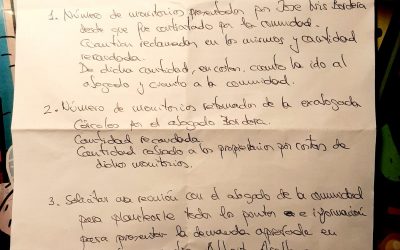 1. Número de monitorios presentados por Jose Luis Bordera
desde que fue contratado por la comunidad.
Cuantían reclamadas en los mismos y cantidad
recaudada.
De dicha cantidad, en costas, cuanto ha ido al
abogado y cuanto a la comunidad.
2. Número de monitorios retomados de la exabogada
Cárceles por el abogado Bordera.
Cantidad recaudada
Cantidad cobrado a los propietarios por costas de
dichos monitorios.
3. Solicitar una reunión con el abogado de la comunidad
para plantearle todos los puntos e información
para presentar la demanda aprobada en